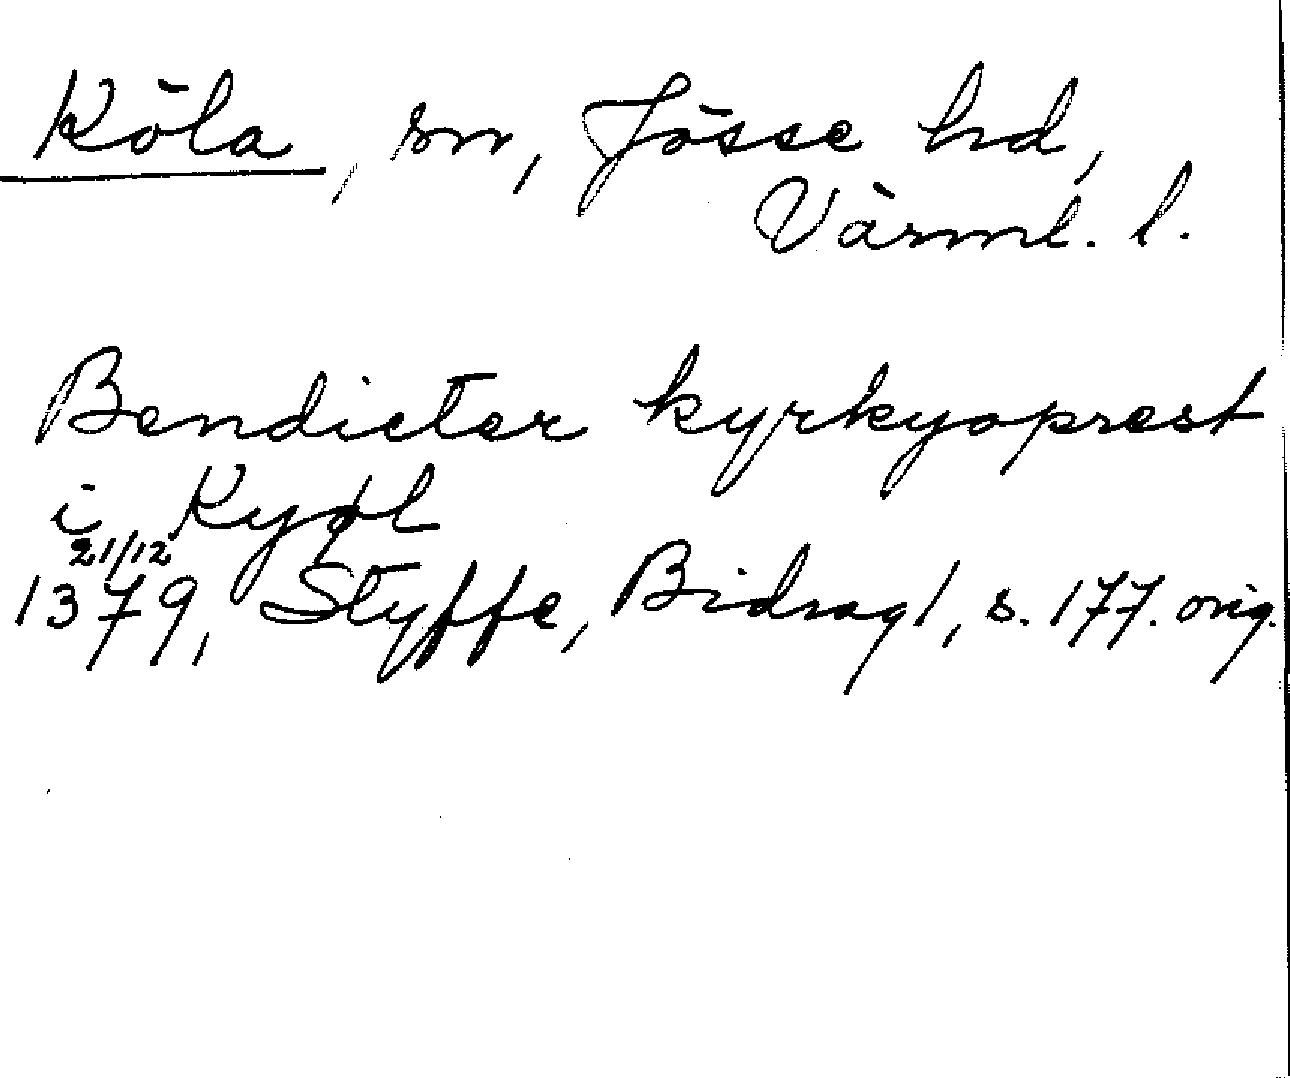 Köla, sn, Jösse hd,
Värml. l.
Bendicter kyrkyoprest
i Kyøl
21/12
1379, Styffe, Bidrag 1, s. 177. orig.